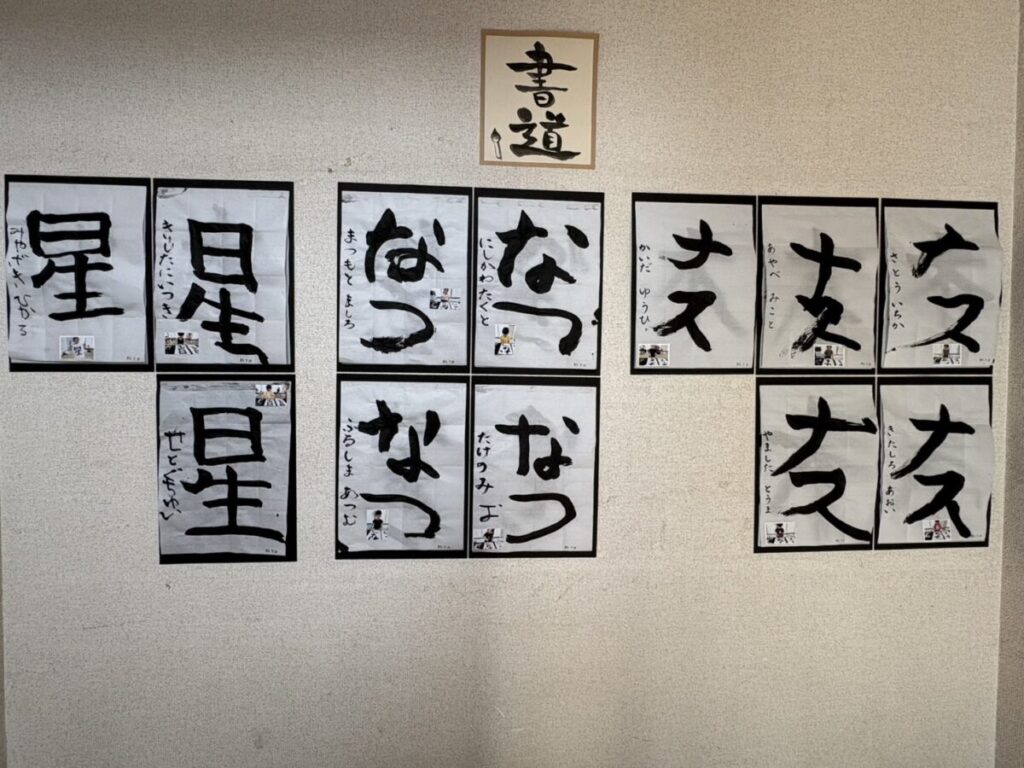 書道
星
みやざき ひかる
星
きしたにいつき
なつ
まつもと ましろ
なつ
にしかわたくと
ナス
かいだ ゆうひ
ナス
あやべ みこと
ナス
さとう いちか
星
なつ
ふるしま あつむ
なつ
たけのみ
ナス
やました とうま
ナス
きたしろ あおい